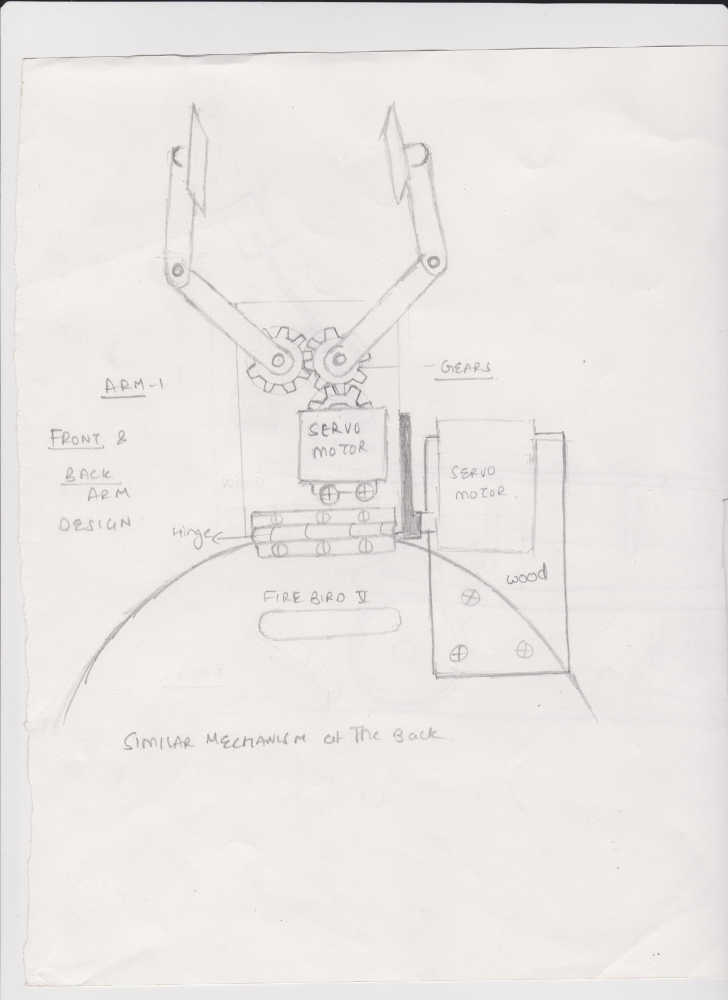 GEARS
ARM-1
FRONT &
BACK
ARM
DESIGN
SERVO
MOTOR
SERVO
MOTOR
Hinge
wood
FIRE BIRD V
SIMILAR MECHANISM at The Back